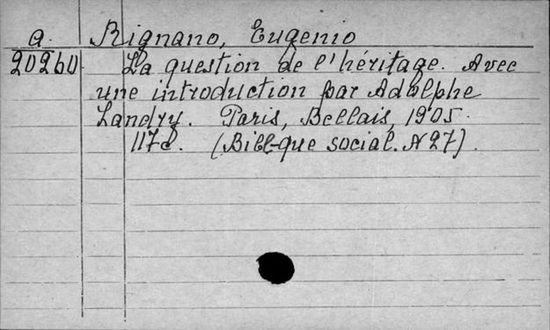 a. Rignano, Eugenio
20260 La question de l'héritage. Avec
une introduction par Adolphe
Landry. Paris, Bellais, 1905.
117 d. (Bibl-que social. N 27).